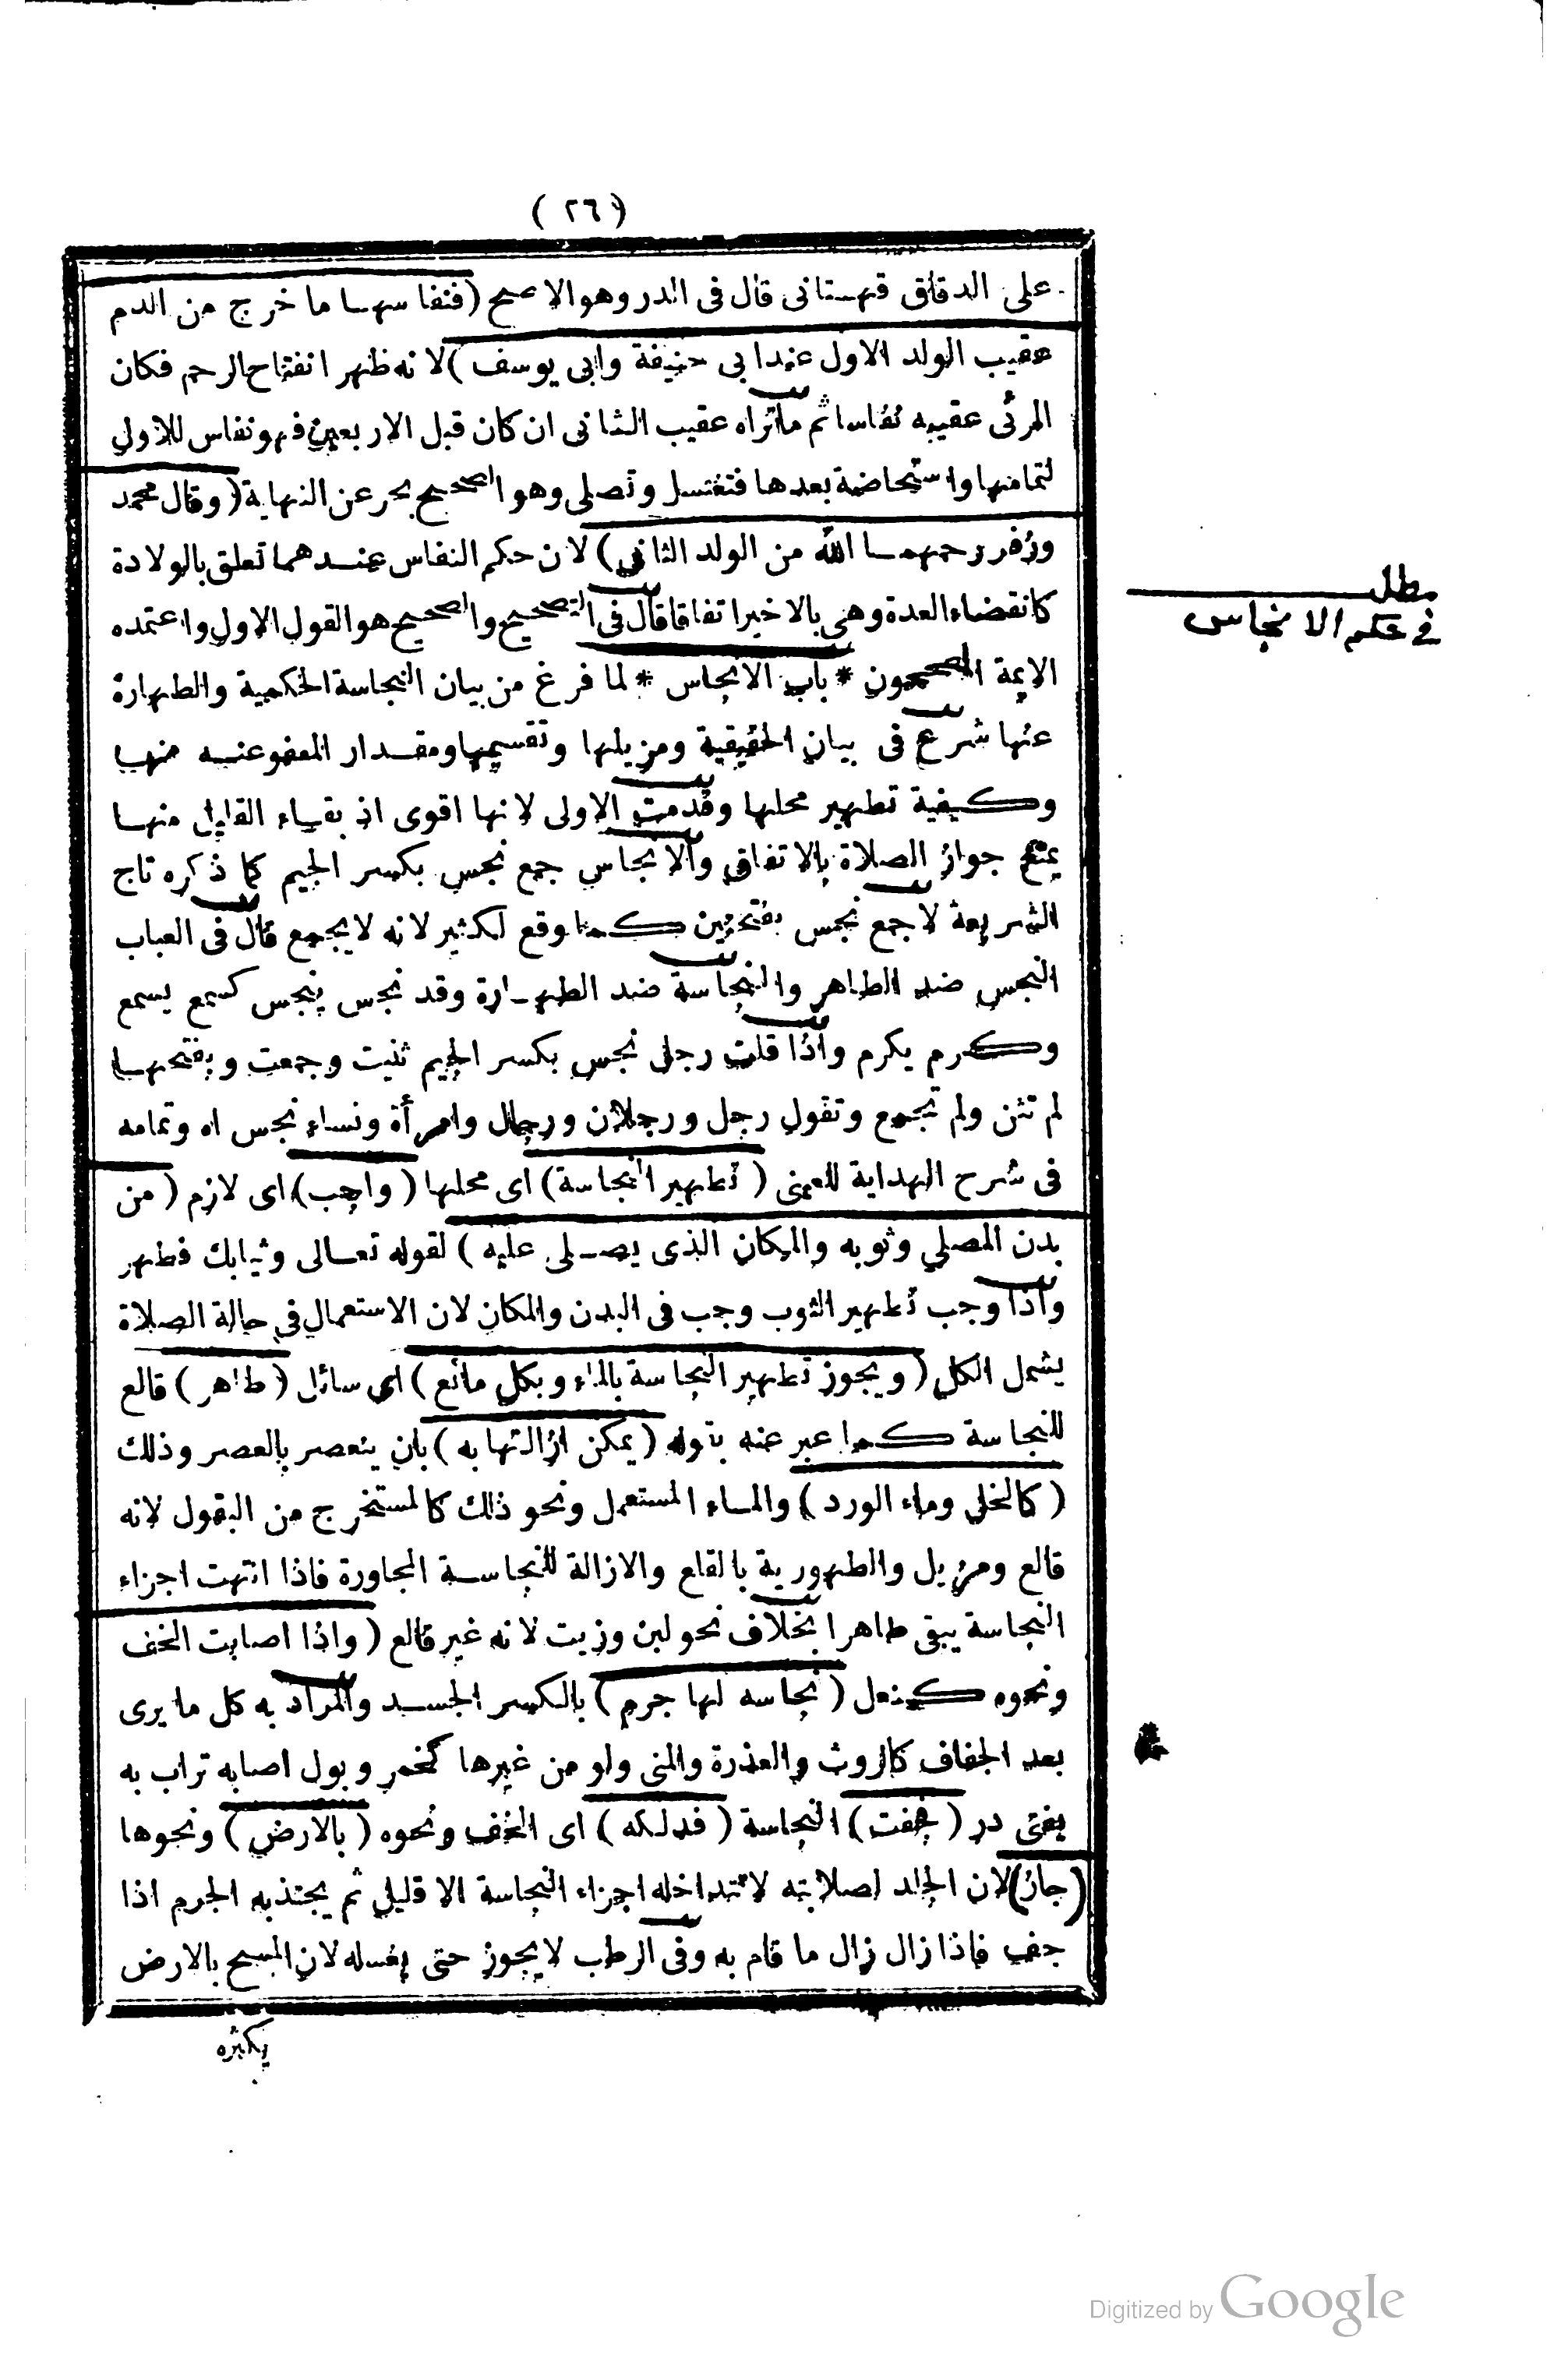 ( ٢٦ )
على الدقاق قهستانى قال فى الدر وهو الاصح (فنفاسهـا ما خرج من الدم
عقيب الولد الاول عند ابى حنيفة وابى يوسف) لانه ظهر انفتاح الرحم فكان
المرئى عقيبه نفاسا ثم ماتراه عقيب الثانى ان كان قبل الاربعين فهو نفاس للاول
لتمامها واستحاضة بعدها فتغتسل وتصلى وهو الصحيح بحر عن النهاية (وقال محمد
وزفر رحمهمـا الله من الولد الثانى) لان حكم النفاس عنـدهما تعلق بالولادة
كانقضاء العدة وهى بالاخير اتفاقا قال فى التصحيح والصحيح هو القول الاول واعتمده
الايمة المصححون * باب الانجاس * لما فرغ من بيان النجاسة الحكمية والطهارة
عنها شرع فى بيان الحقيقية ومزيلها وتقسيمها ومقـدار المعفو عنـه منها
وكيفية تطهير محلها وقدمت الاولى لانها اقوى اذ بقـاء القليل منهـا
يمنع جواز الصلاة بالاتفاق والانجاس جمع نجس بكسر الجيم كما ذكره تاج
الشريعة لا جمع نجس بفتحتين كما وقع لكثير لانه لا يجمع قال فى العباب
النجس ضد الطاهر والنجاسة ضد الطهـارة وقد نجس ينجس كسمع يسمع
وكرم يكرم واذا قلت رجل نجس بكسر الجيم ثنيت وجمعت وبفتحهـا
لم تثن ولم تجمع وتقول رجل ورجلان ورجال وامرأة ونساء نجس اه وتمامه
فى شرح الهداية للعينى (تطهير النجاسة) اى محلها (واجب) اى لازم (من
بدن المصلي وثوبه والمكان الذى يصـلى عليه) لقوله تعـالى وثيابك فطهر
واذا وجب تطهير الثوب وجب فى البدن والمكان لان الاستعمال فى حالة الصلاة
يشمل الكل (ويجوز تطهير النجاسة بالماء وبكل مائع) اى سائل (طاهر) قالع
للنجاسة كما عبر عنه بقوله (يمكن ازالتها به) بان ينعصر بالعصر وذلك
(كالخل وماء الورد) والمـاء المستعمل ونحو ذلك كالمستخرج من البقول لانه
قالع ومزيل والطهورية بالقلع والازالة للنجاسـة المجاورة فاذا انتهت اجزاء
النجاسة يبقى طاهرا بخلاف نحو لبن وزيت لانه غير قالع (واذا اصابت الخف
ونحوه كنعل (نجاسه لها جرم) بالكسر الجسـد والمراد به كل ما يرى
بعد الجفاف كالروث والعذرة والمنى ولو من غيرها كخمر وبول اصابه تراب به
يفتى در (فجفت) النجاسة (فدلكه) اى الخف ونحوه (بالارض) ونحوها
(جاز) لان الجلد لصلابته لا تتداخله اجزاء النجاسة الا قليل ثم يجتذبه الجرم اذا
جف فاذا زال زال ما قام به وفى الرطب لا يجوز حتى يغسله لان المسح بالارض
يكثره
مطلب
فى حكم الانجاس
Digitized by Google